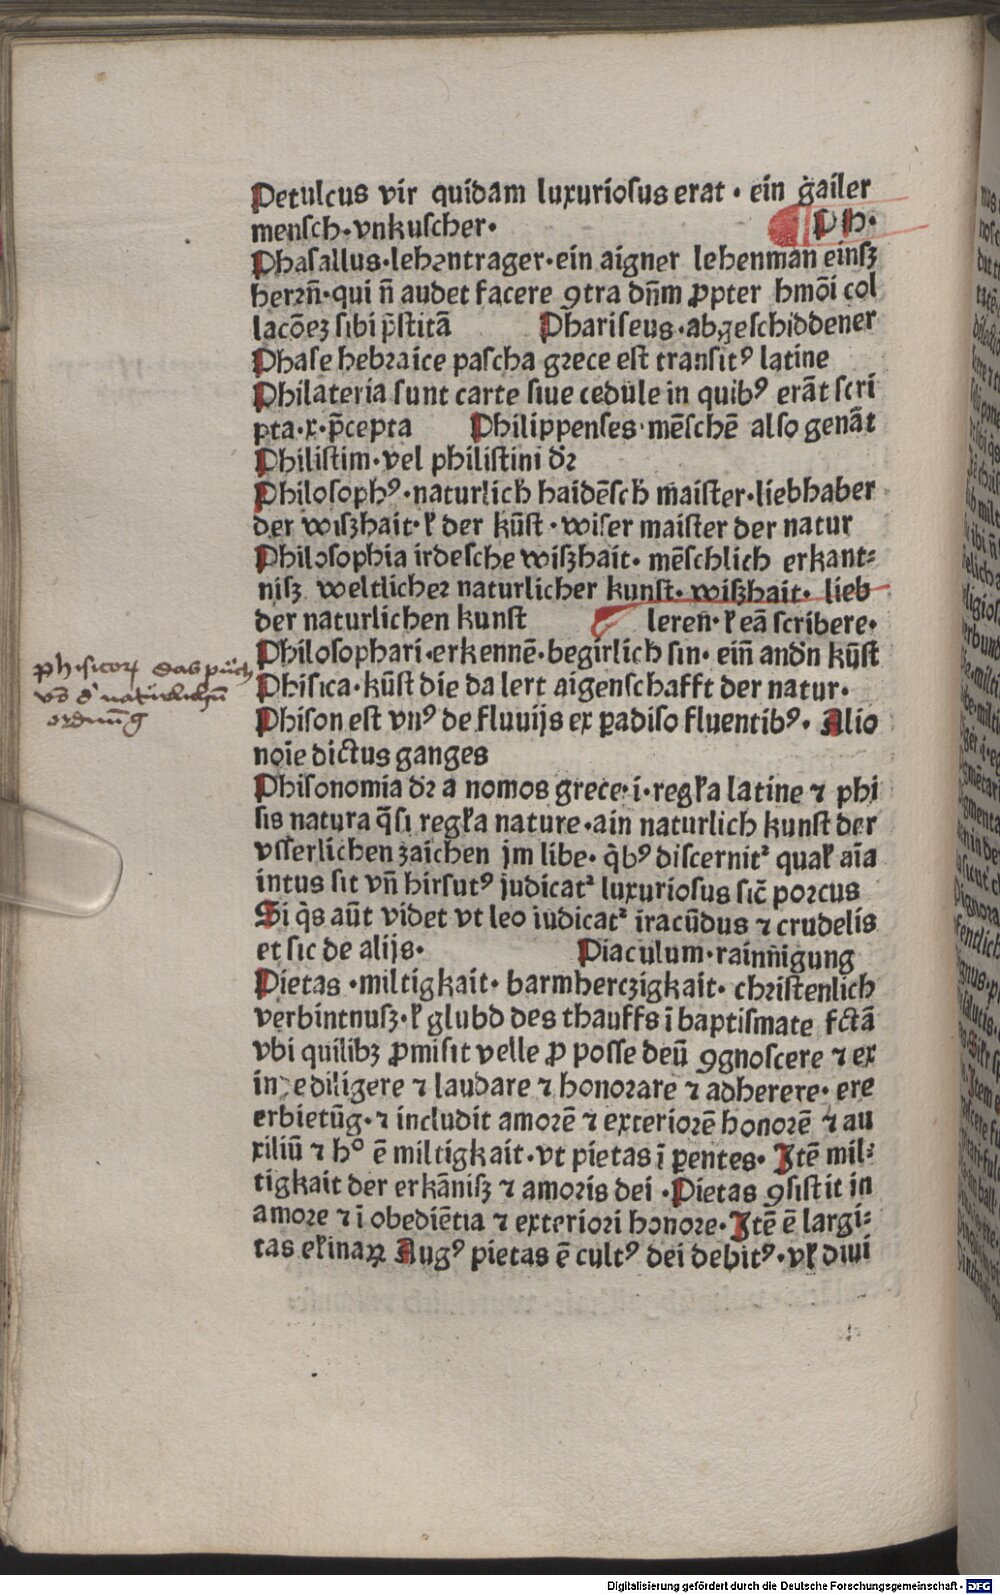 Petulcus vir quidam luxuriosus erat · ein gailer
mensch · vnkuscher · Ph ·
Phasallus · lehentrager · ein aigner lehenman einsz
herꝛn̄ · qui n̄ audet facere ꝯtra dn̄m ꝓpter hmōi col
lacōeꝫ sibi p̄stitā Phariseus · abgeschiddener
Phase hebraice pascha grece est transitꝰ latine
Philateria sunt carte siue cedule in quibꝰ erāt scri
pta · x · p̄cepta Philippenses · mēschē also genāt
Philistim · vel philistini dꝛ
Philosophꝰ · naturlich haidēsch maister · liebhaber
der wiszhait · ꝉ der kūst · wiser maister der natur
Philosophia irdesche wiszhait · mēschlich erkant⸗
nisz weltlicher naturlicher kunst · wiszhait · lieb
der naturlichen kunst leren̄ · ꝉ eā scribere ·
Philosophari · erkennē · begirlich sin · ein̄ andn̄ kūst
Phisica · kūst die da lert aigenschafft der natur ·
Phison est vnꝰ de fluuijs ex ꝑadiso fluentibꝰ · Alio
noīe dictus ganges
Phisonomia dꝛ a nomos grece · i · regꝉa latine ⁊ phi
sis natura q̄si regꝉa nature · ain naturlich kunst der
vsserlichen zaichen jm libe · q̇bꝰ discernitᷣ qualꝭ aīa
intus sit vn̄ hirsutꝰ judicatᷣ luxuriosus sic̄ porcus
Si q̇s aūt videt vt leo iudicatᷣ iracūdus ⁊ crudelis
et sic de alijs · Piaculum · rainn̄igung
Pietas · miltigkait · barmherczigkait · christenlich
verbintnusz · ꝉ glubd des thauffs ī baptismate fctā
vbi quilibꝫ ꝓmisit velle ꝓ posse deū ꝯgnoscere ⁊ ex
inde diligere ⁊ laudare ⁊ honorare ⁊ adherere · ere
erbietūg · ⁊ includit amorē ⁊ exteriorē honorē ⁊ au
xiliū ⁊ hº ē miltigkait · vt pietas ī ꝑentes · Itē mil⸗
tigkait der erkānisz ⁊ amoris dei · Pietas ꝯsistit in
amore ⁊ ī obediētia ⁊ exteriori honore · Itē ē largi⸗
tas elꝉinaꝝ Augꝰ pietas ē cultꝰ dei debitꝰ · vꝉ diui
phisicorum das puͤch
vō dˀ natürlichn̄
ordnūg
Digitalisierung gefördert durch die Deutsche Forschungsgemeinschaft - DFG